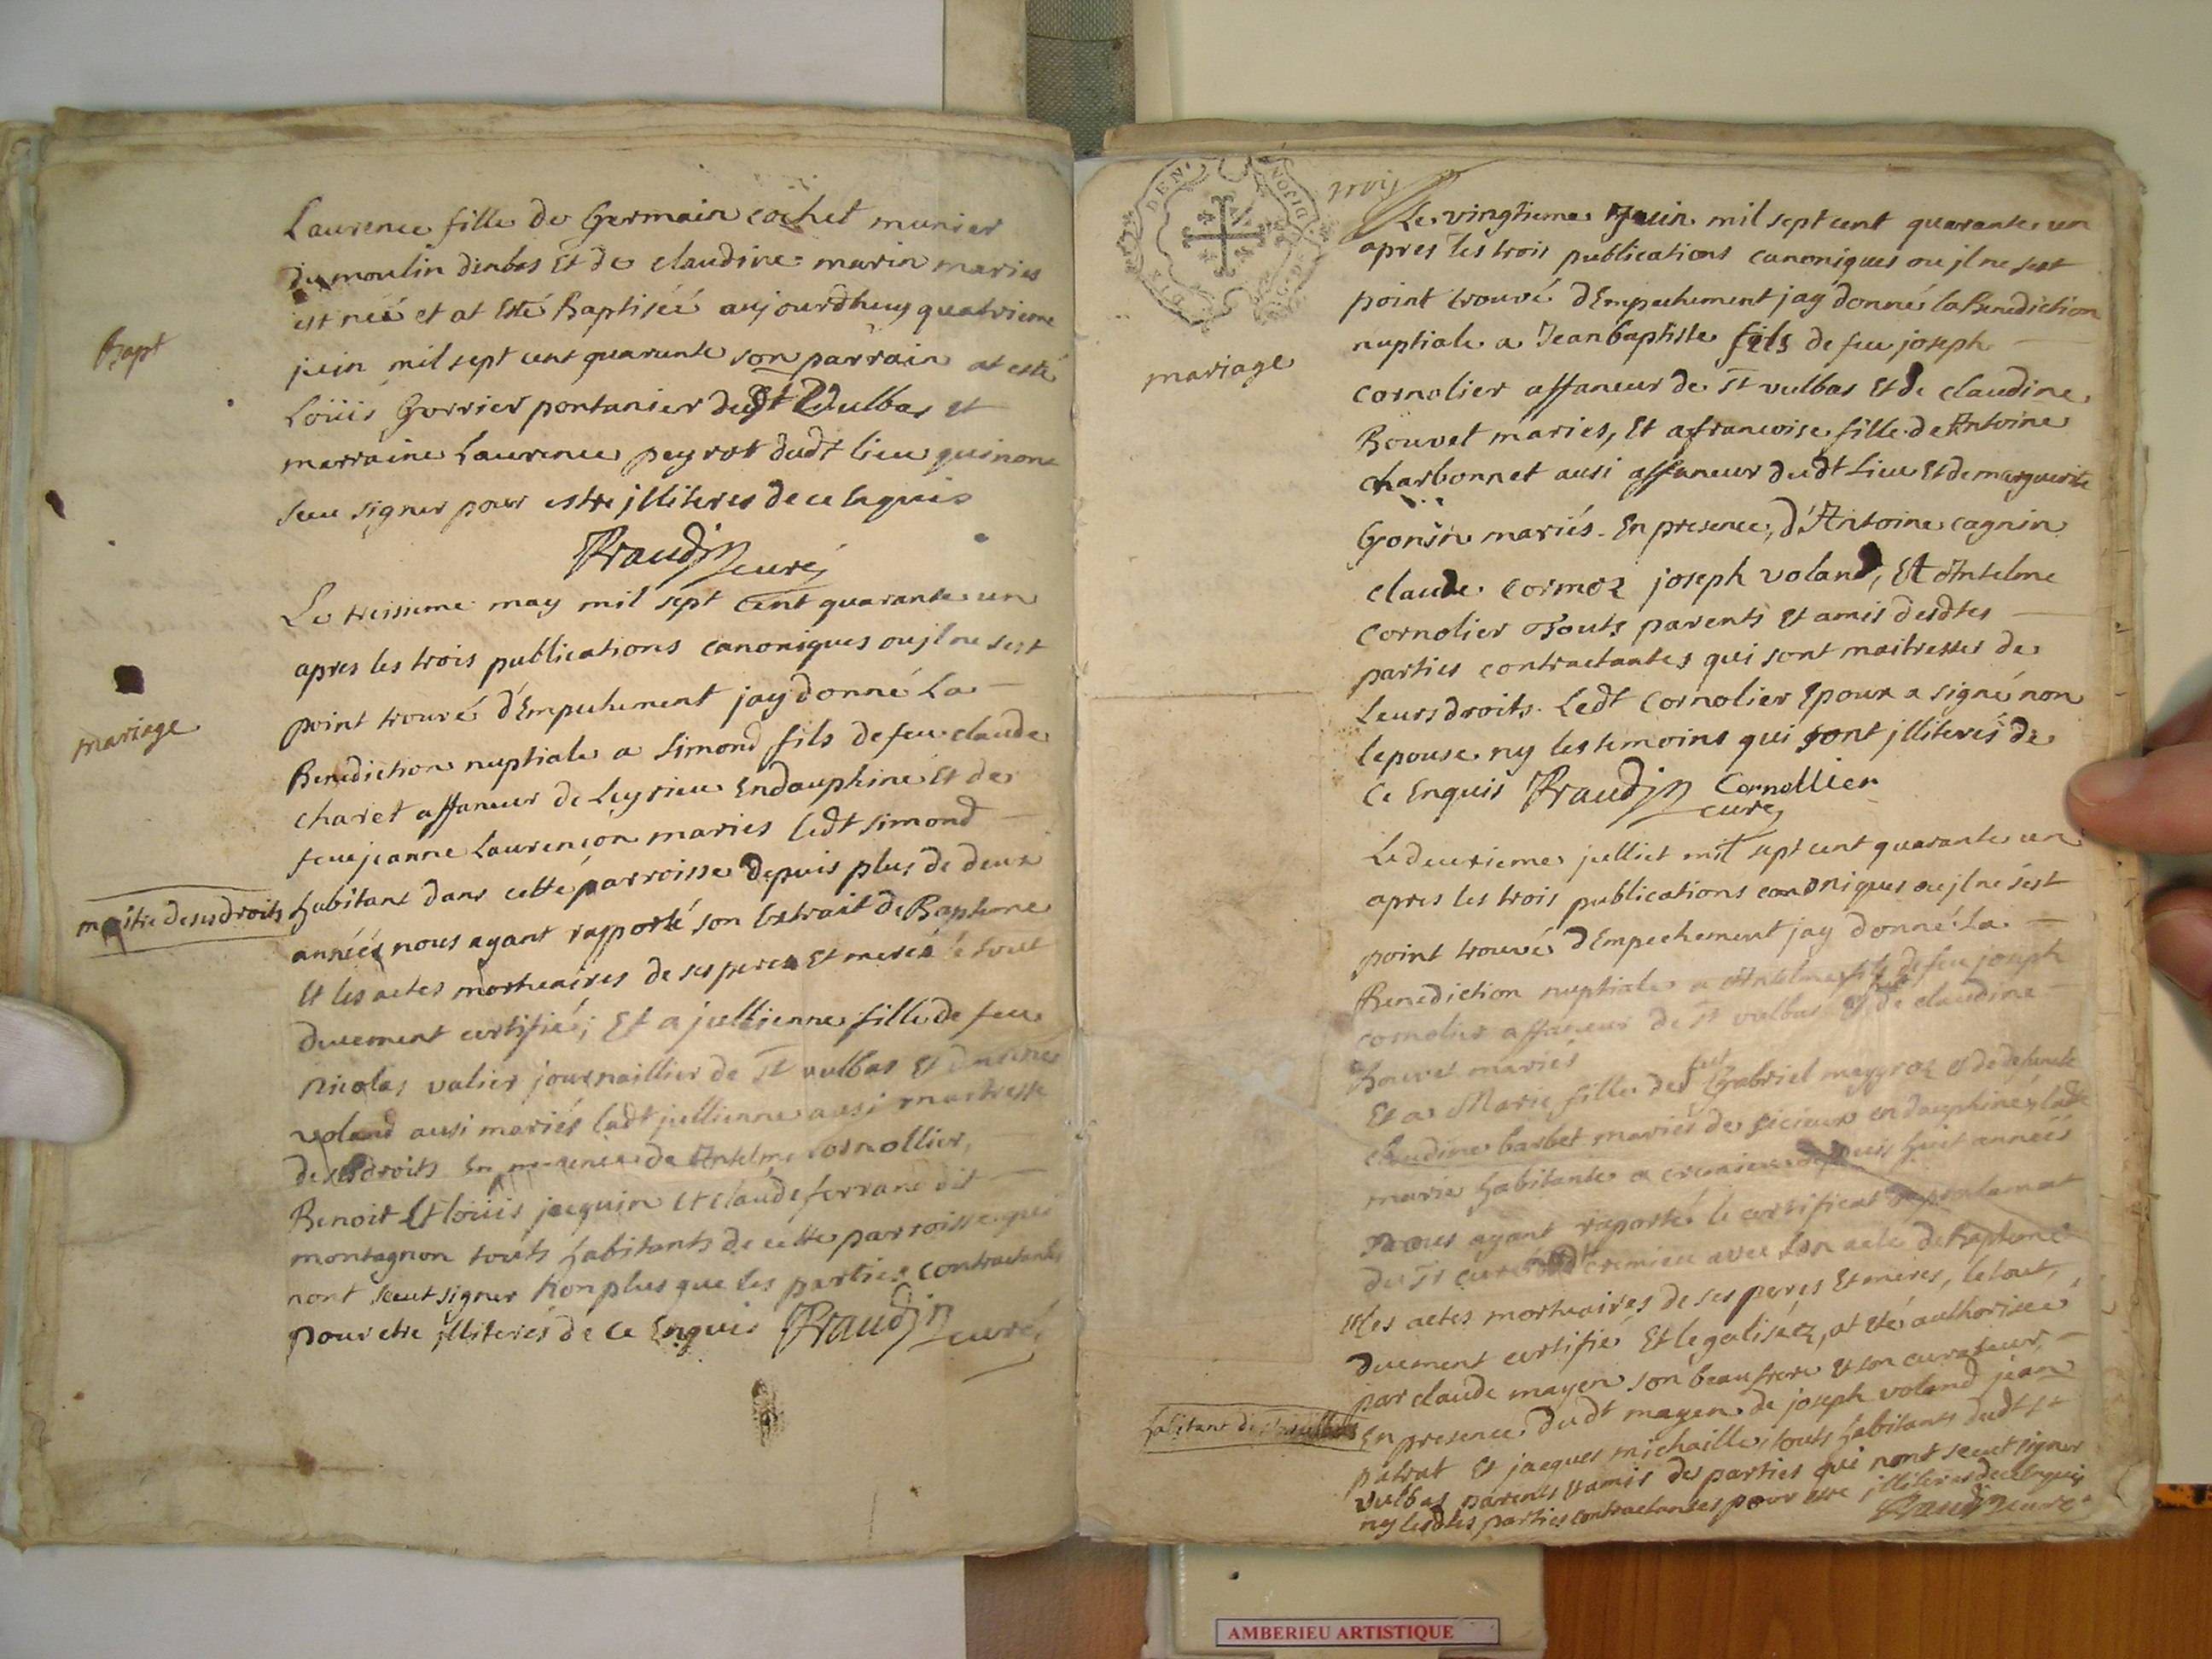 Bapt
Laurence fille de Germain cochet munier
du moulin denbas Et de claudine marin maries
est née et at Esté Baptiséé aujourdhuy quatrieme
juin mil sept cent quarante son parrain at esté
Loüis Gorrier pontanier dudt St Vulbas et
marraine Laurence peyrot dudt lieu qui nont
sceu signer pour estre jlliteres de ce Enquis
Fraudin curé
mariage
Le treisieme may mil sept cent quarante un
apres les trois publications canoniques ou jl ne sest
point trouvé d'Empechement jay donné La
Benediction nuptiale a Simond fils de feu claude
charet affaneur de Leyrieu En dauphiné Et de
feue jeanne Laurençon maries ledt Simond
maitre de ses droits
habitant dans cette parroisse depuis plus de deux
annéés nous ayant rapporté son Extrait de Bapteme
Et les actes mortuaires de ses peres Et meres le tout
duement certifié; Et a jullienne fille de feu
Nicolas valier journaillier de St vulbas Et
voland ausi mariés ladt jullienne ausi maitresse
de ses droits En presence de Antelme Cornollier,
Benoit Et loüis jacquin et claude ferrand dit
montagnon touts habitants de cette parroisse qui
nont sceut signer Non plus que les parties contractantes
pour etre jlliterés de ce Enquis Fraudin
curé
DIJON
trois
mariage
Le vingtieme juin mil sept cent quarante un
apres les trois publications canoniques ou jl ne sest
point trouvé d'Empechement jay donné la Benediction
nuptiale a Jean baptiste fils de feu joseph
Cornolier affaneur de St vulbas Et de claudine
Bouvet maries, Et a francoise fille de Antoine
charbonnet ausi affaneur dudt Lieu Et de marguerite
Gonin mariés. En presence, d'Antoine cagnin
claude Cormoz joseph voland, Et Antelme
Cornolier Touts parents Et amis desdtes
parties contractantes qui sont maitresses de
Leurs droits. Ledt Cornolier Epoux a signé non
lepouse ny les temoins qui sont jlliterés de
Ce Enquis Fraudin Cornollier
curé
Le deuxieme julliet mil sept cent quarante un
apres les trois publications canoniques ou jl ne s'est
point trouvé d'Empechement jay donné La
Benediction nuptiale a Antelme fils de feu joseph
cornolier affaneur de St vulbas Et de claudine
Bouvet mariés
Et a Marie fille de feu Gabriel meygroz et de defunte
claudine barbet mariés de en dauphiné, ladte
marie habitante a cremieu depuis huit annéés
Nous ayant raporté le certificat
du Sr curé dudt cremieu avec son acte de Bapteme
Et les actes mortuaires de ses peres Et meres, le tout,
duement certifié Et legalisez, at eté authoriseé
par claude mayen son beaufrere et son curateur,
En presence dudt mayen de joseph voland jean
habitant de St vulbas
patrat Et jacques michaille, touts habitants dudt St
vulbas parents et amis des parties qui nont sceut signer
ny lesdtes parties contractantes pour etre jlliteres de ce Enquis
Fraudin curé
AMBERIEU ARTISTIQUE